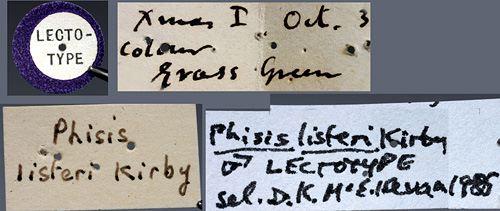 LECTO-
TYPE
Xmas I. Oct. 3
Colour
Grass Green
Phisis
listeri Kirby
Phisis listeri Kirby
♂ LECTOTYPE
sel. D.K. McE. Kevan 1985